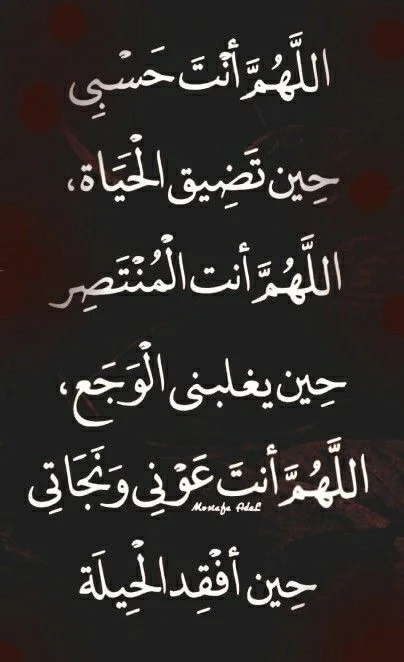 اللَّهُمَّ أنْتَ حَسْبِي
حِين تَضِيق الْحَيَاة،
اللَّهُمَّ أنت الْمُنْتَصِر
حِين يغلبنى الْوَجَع،
اللَّهُمَّ أنتَ عَوْنِي وَنَجَاتِي
Mostafa Adel
حِين أفْقِد الْحِيلَة